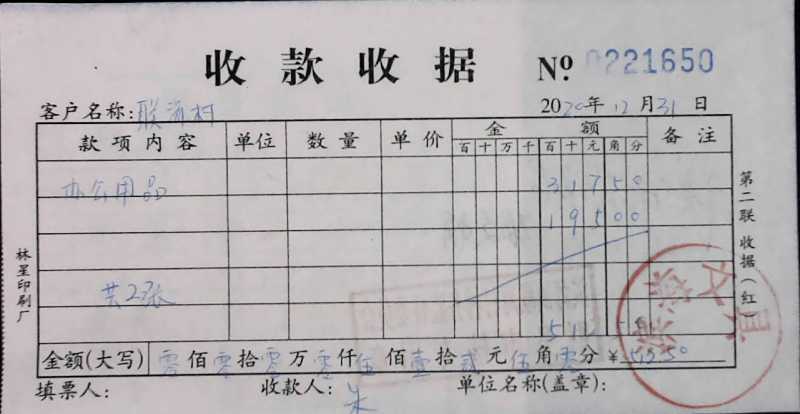 收款收据 Nº 0221650
客户名称: 联 村 2020年12月31日
款项内容 单位 数量 单价 金额 备注
百十万千百十元角分
办公用品 31750
19500
共2张
51250
金额(大写) 零佰零拾零万零仟伍佰壹拾贰元伍角零分 ¥
填票人: 收款人: 朱 单位名称(盖章):
第二联 收据(红)
林星印刷厂